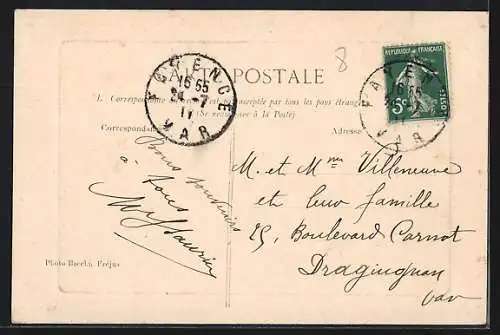 8
CARTE POSTALE
REPUBLIQUE FRANÇAISE
POSTES
5c
FAYENCE
16 55
24-7
11
VAR
FAYEN
16 55
VAR
L. Correspondance acceptée par tous les pays étrangers
(Se renseigner à la Poste)
Correspondance
Adresse
Bons souvenirs
à tous
M. et Mme Villeneuve
et leur famille
25, Boulevard Carnot
Draguignan
Var
Photo Bacchi, Fréjus